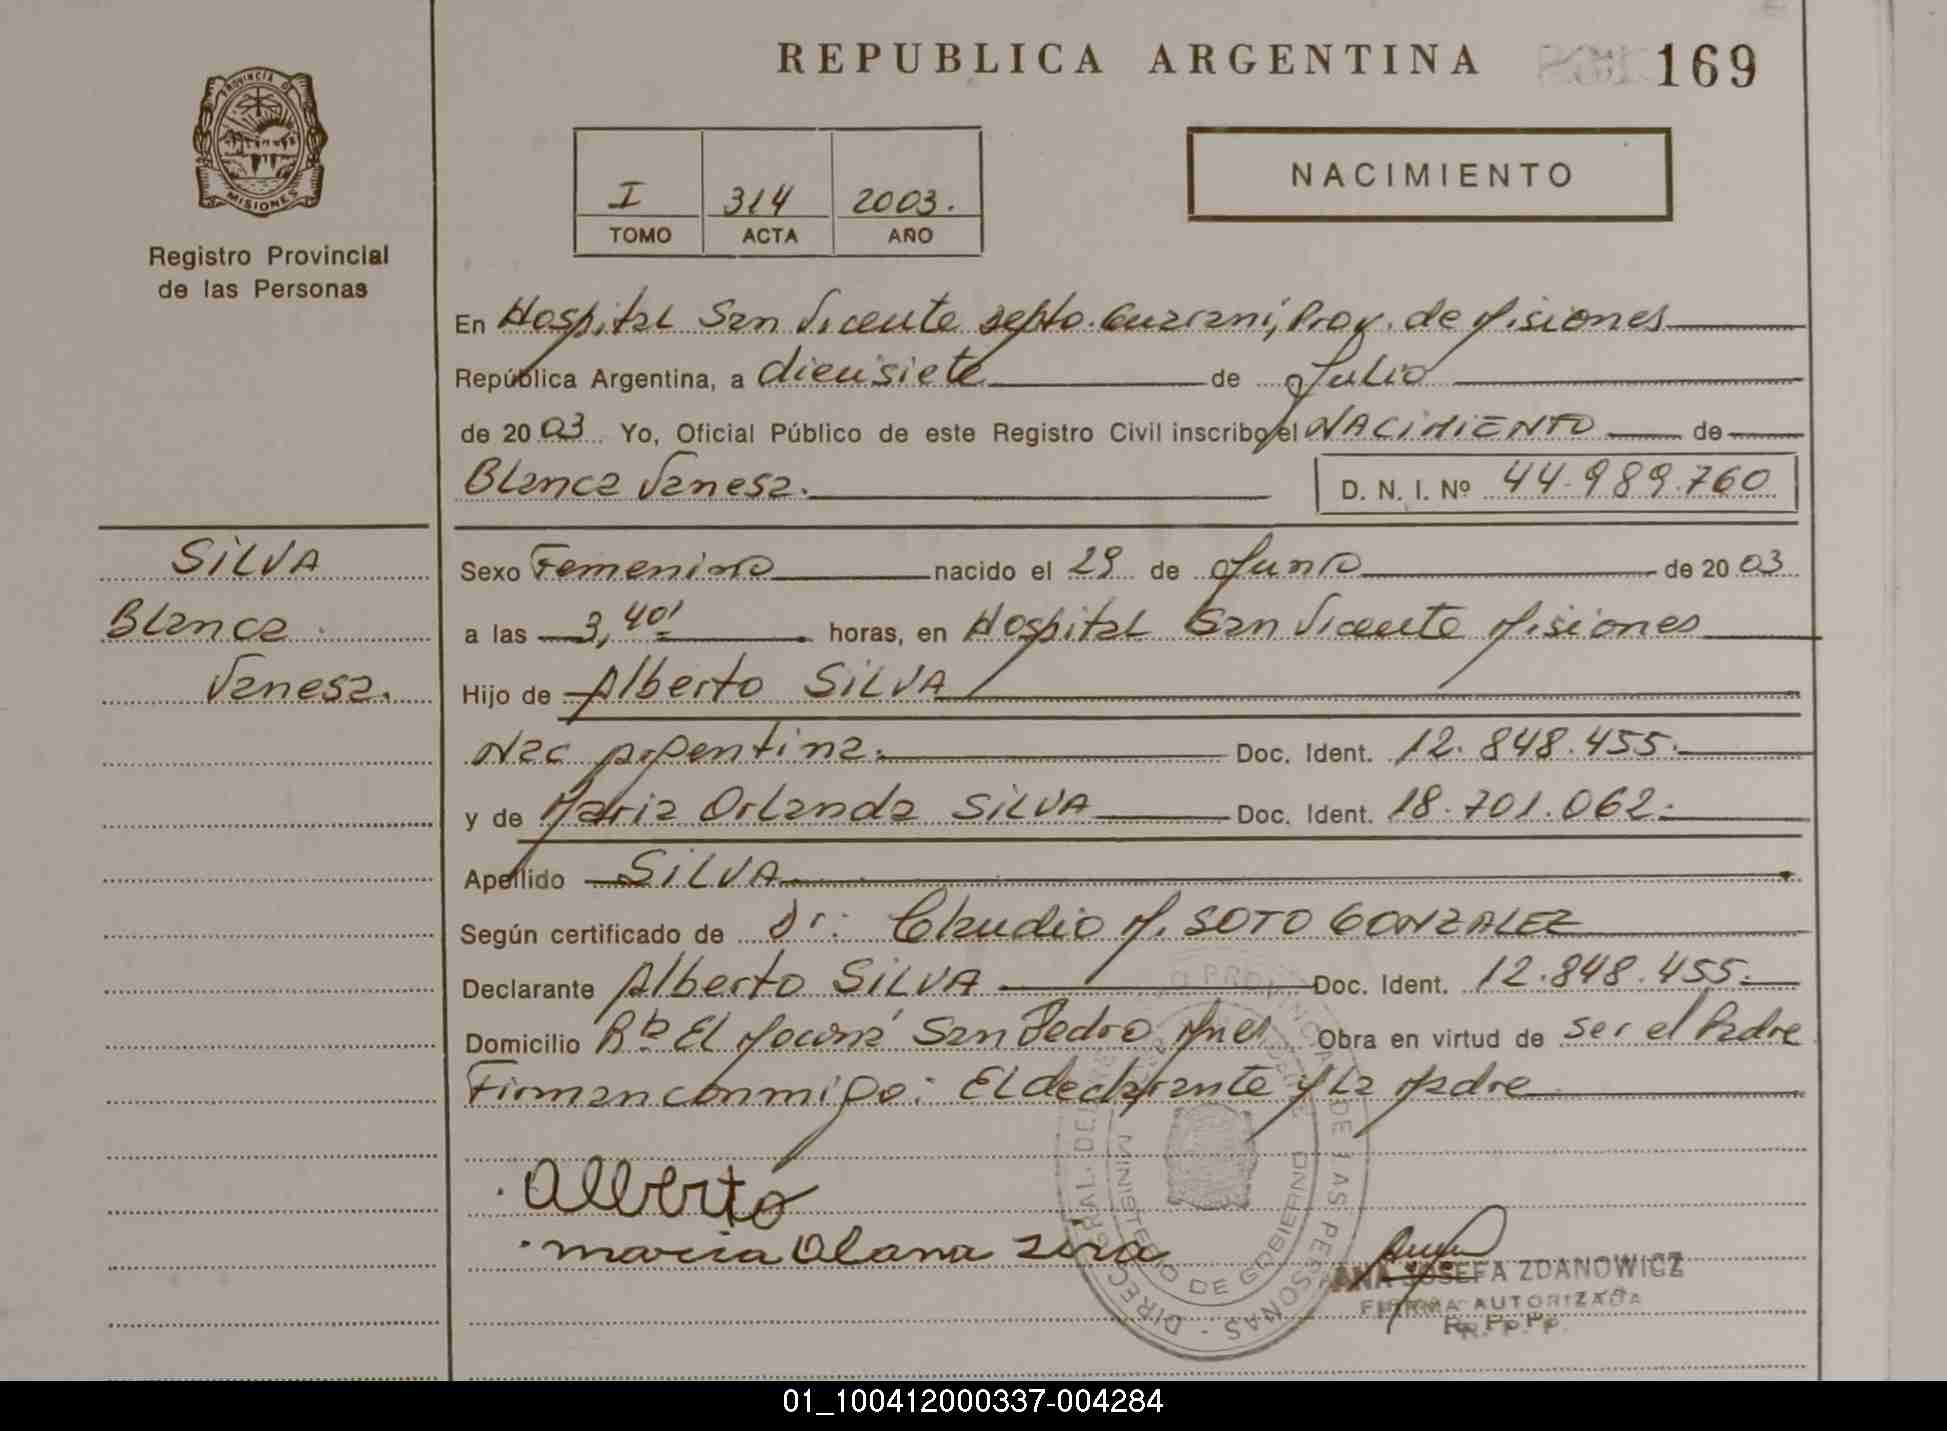 REPUBLICA ARGENTINA
169
PROVINCIA DE
MISIONES
Registro Provincial
de las Personas
I 314 2003.
TOMO ACTA AÑO
NACIMIENTO
En Hospital San Vicente Depto. Guaraní, Prov. de Misiones
República Argentina, a diecisiete de Julio
de 2003 Yo, Oficial Público de este Registro Civil inscribo el NACIMIENTO de
Blanca Vanesa. D. N. I. Nº 44.989.760
SILVA
Blanca
Vanesa.
Sexo Femenino nacido el 29 de Junio de 2003
a las 3,40' horas, en Hospital San Vicente Misiones
Hijo de Alberto SILVA
Nac Argentina. Doc. Ident. 12.848.455.
y de Maria Orlanda SILVA Doc. Ident. 18.701.062.
Apellido SILVA
Según certificado de Dr. Claudio M. SOTO GONZALEZ
Declarante Alberto SILVA Doc. Ident. 12.848.455.
Domicilio Bº El Moconá San Pedro Mnes Obra en virtud de ser el Padre
Firman conmigo: El declarante y la Madre
Alberto
maria Olana
MINISTERIO DE GOBIERNO
DE LAS PERSONAS
ANA JOSEFA ZDANOWICZ
FIRMA AUTORIZADA
R. Pp. Pp.
01_100412000337-004284